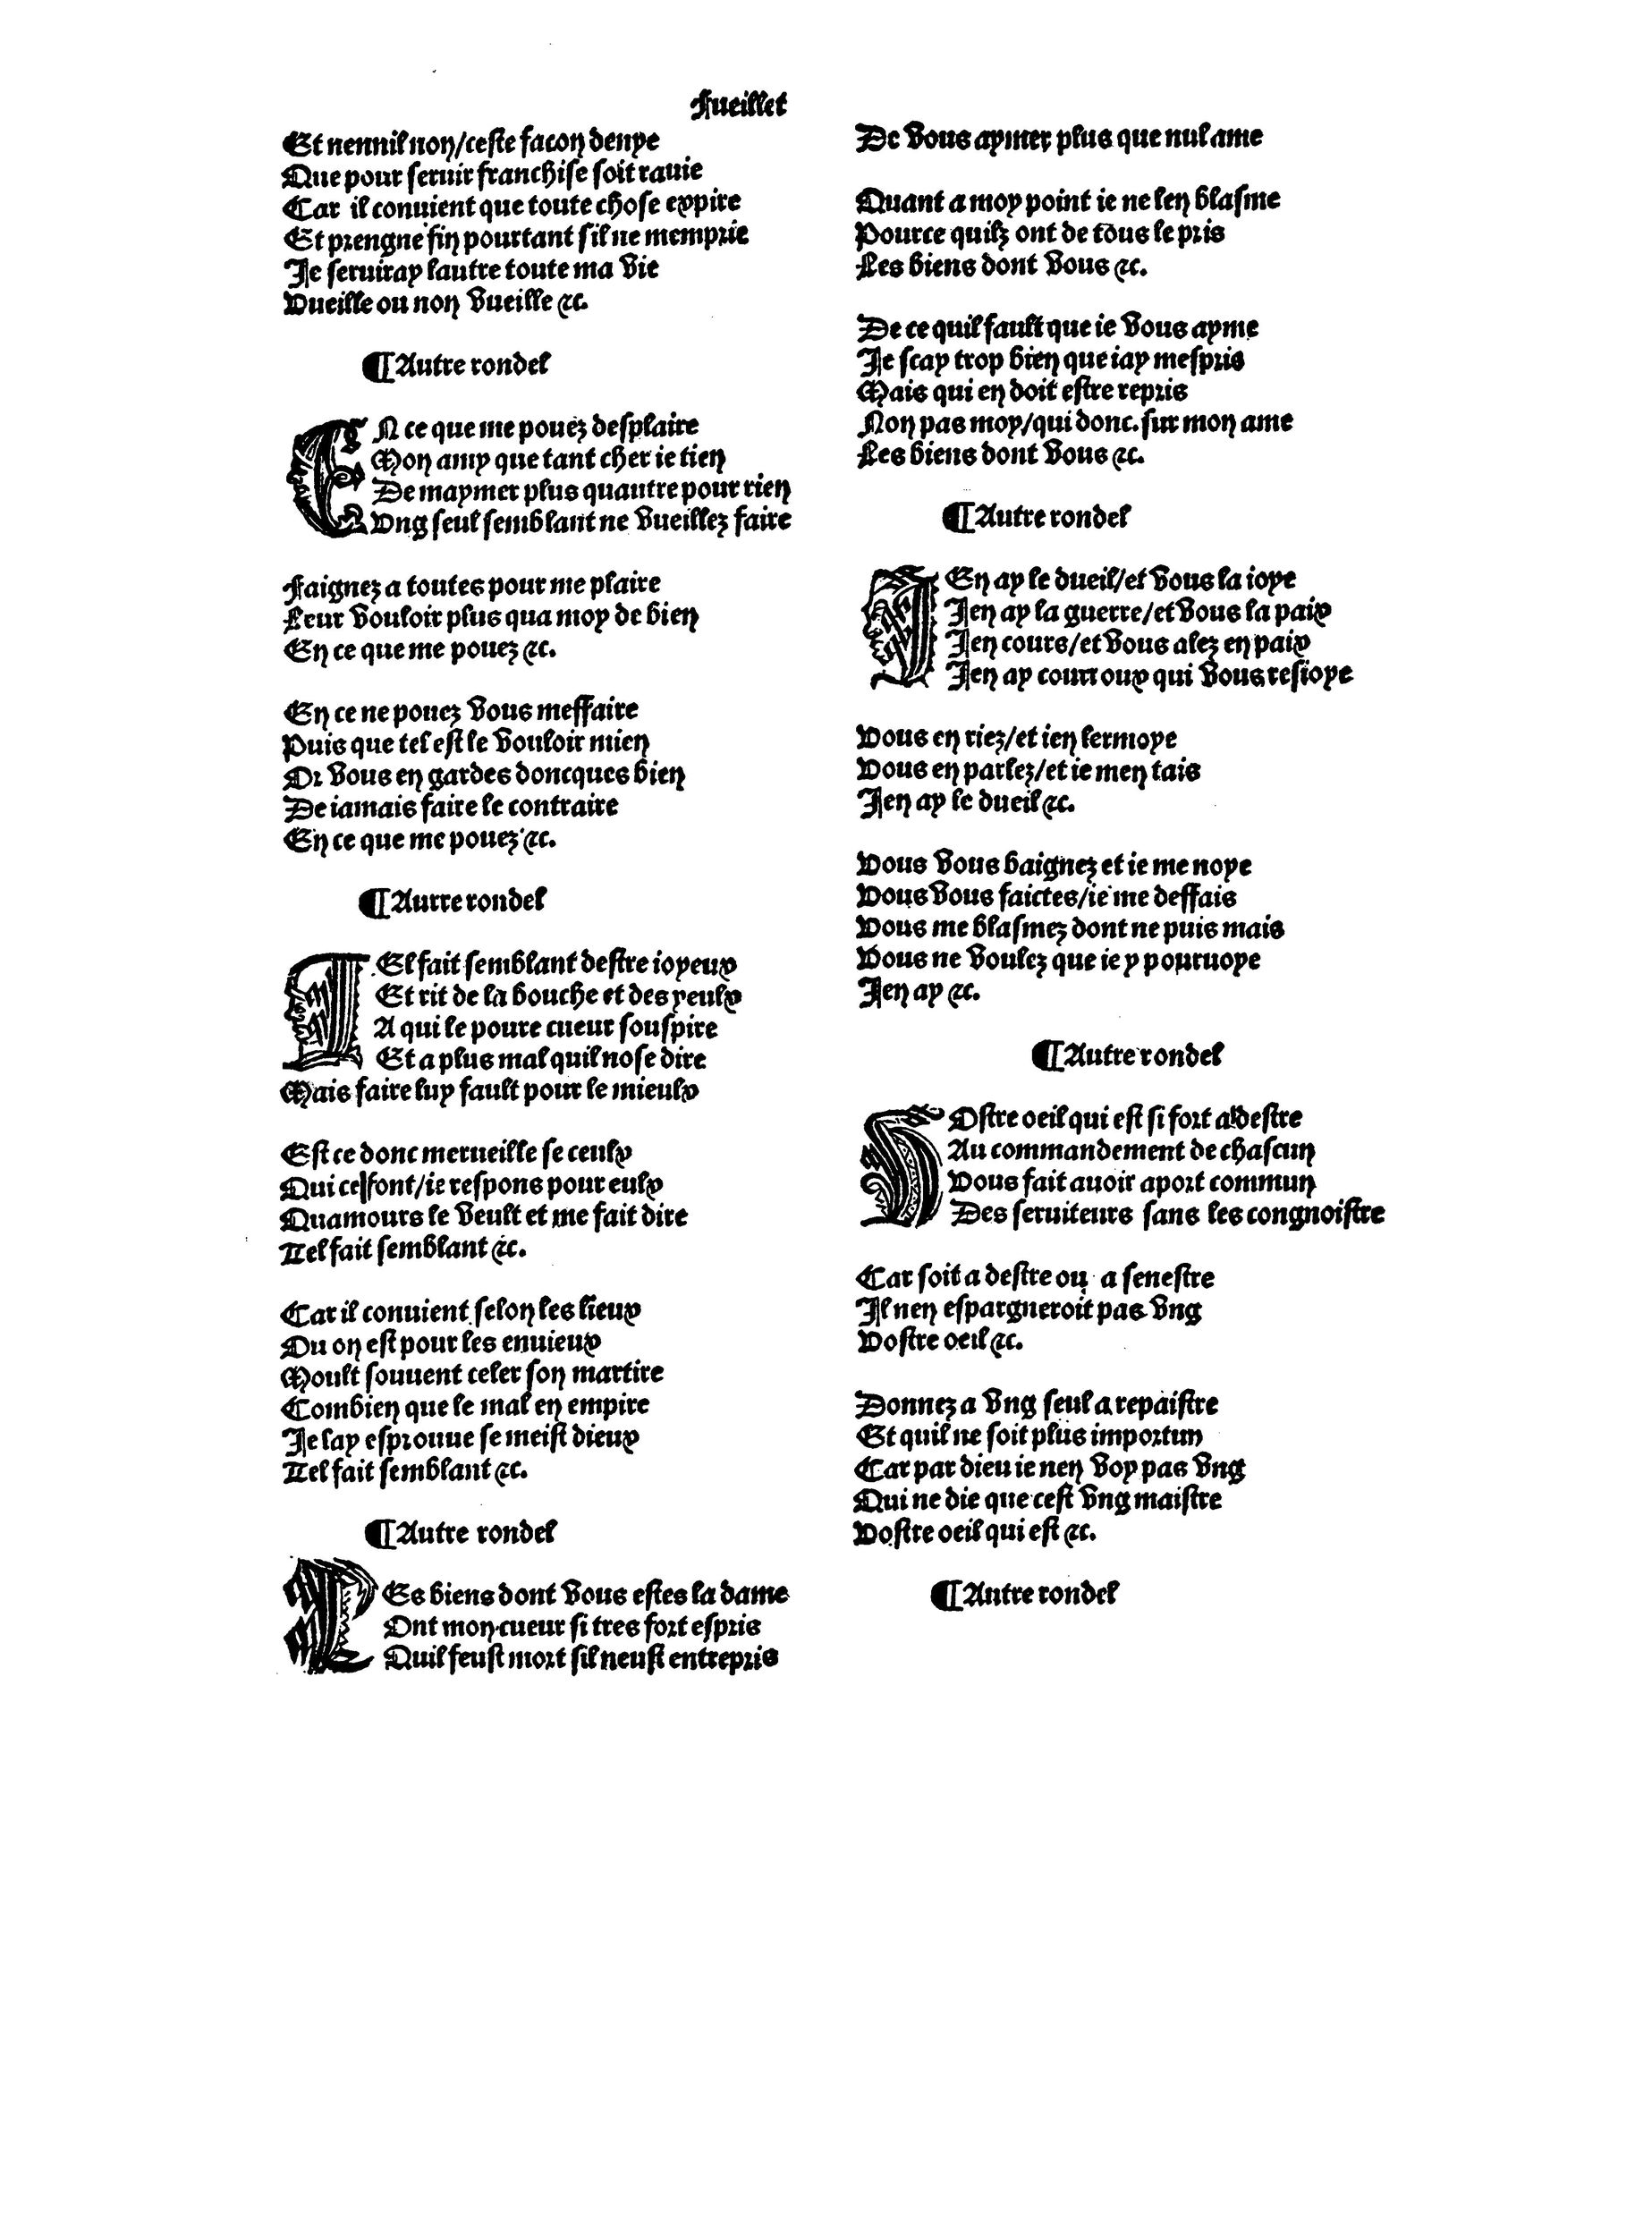 Fueillet
Et nennil non/ceste facon denye
Que pour seruir franchise soit rauie
Car il conuient que toute chose expire
Et prengne fin pourtant sil ne memprie
Je seruiray lautre toute ma vie
Vueille ou non vueille &c.
¶Autre rondel
EN ce que me pouez desplaire
Mon amy que tant cher ie tien
De maymer plus quautre pour rien
Vng seul semblant ne vueillez faire
Faignez a toutes pour me plaire
Leur vouloir plus qua moy de bien
En ce que me pouez &c.
En ce ne pouez vous meffaire
Puis que tel est le vouloir mien
Or vous en gardes doncques bien
De iamais faire le contraire
En ce que me pouez &c.
¶Autre rondel
TEl fait semblant destre ioyeux
Et rit de la bouche et des yeulx
A qui le poure cueur souspire
Et a plus mal quil nose dire
Mais faire luy fault pour le mieulx
Est ce donc merueille se ceulx
Qui ce font/ie respons pour eulx
Quamours le veult et me fait dire
Tel fait semblant &c.
Car il conuient selon les lieux
Ou on est pour les enuieux
Moult souuent celer son martire
Combien que le mal en empire
Je lay esprouue se meist dieux
Tel fait semblant &c.
¶Autre rondel
LEs biens dont vous estes la dame
Ont mon cueur si tres fort espris
Quil feust mort sil neust entrepris
De vous aymer plus que nul ame
Quant a moy point ie ne len blasme
Pource quilz ont de tous le pris
Les biens dont vous &c.
De ce quil fault que ie vous ayme
Je scay trop bien que iay mespris
Mais qui en doit estre repris
Non pas moy/qui donc. sur mon ame
Les biens dont vous &c.
¶Autre rondel
JEn ay le dueil/et vous la ioye
Jen ay la guerre/et vous la paix
Jen cours/et vous alez en paix
Jen ay courroux qui vous resioye
Vous en riez/et ien lermoye
Vous en parlez/et ie men tais
Jen ay le dueil &c.
Vous vous baignez et ie me noye
Vous vous faictes/ie me deffais
Vous me blasmez dont ne puis mais
Vous ne voulez que ie y pouruoye
Jen ay &c.
¶Autre rondel
VOstre oeil qui est si fort a destre
Au commandement de chascun
Vous fait auoir aport commun
Des seruiteurs sans les congnoistre
Car soit a destre ou a senestre
Il nen espargneroit pas vng
Vostre oeil &c.
Donnez a vng seul a repaistre
Et quil ne soit plus importun
Car par dieu ie nen voy pas vng
Qui ne die que cest vng maistre
Vostre oeil qui est &c.
¶Autre rondel